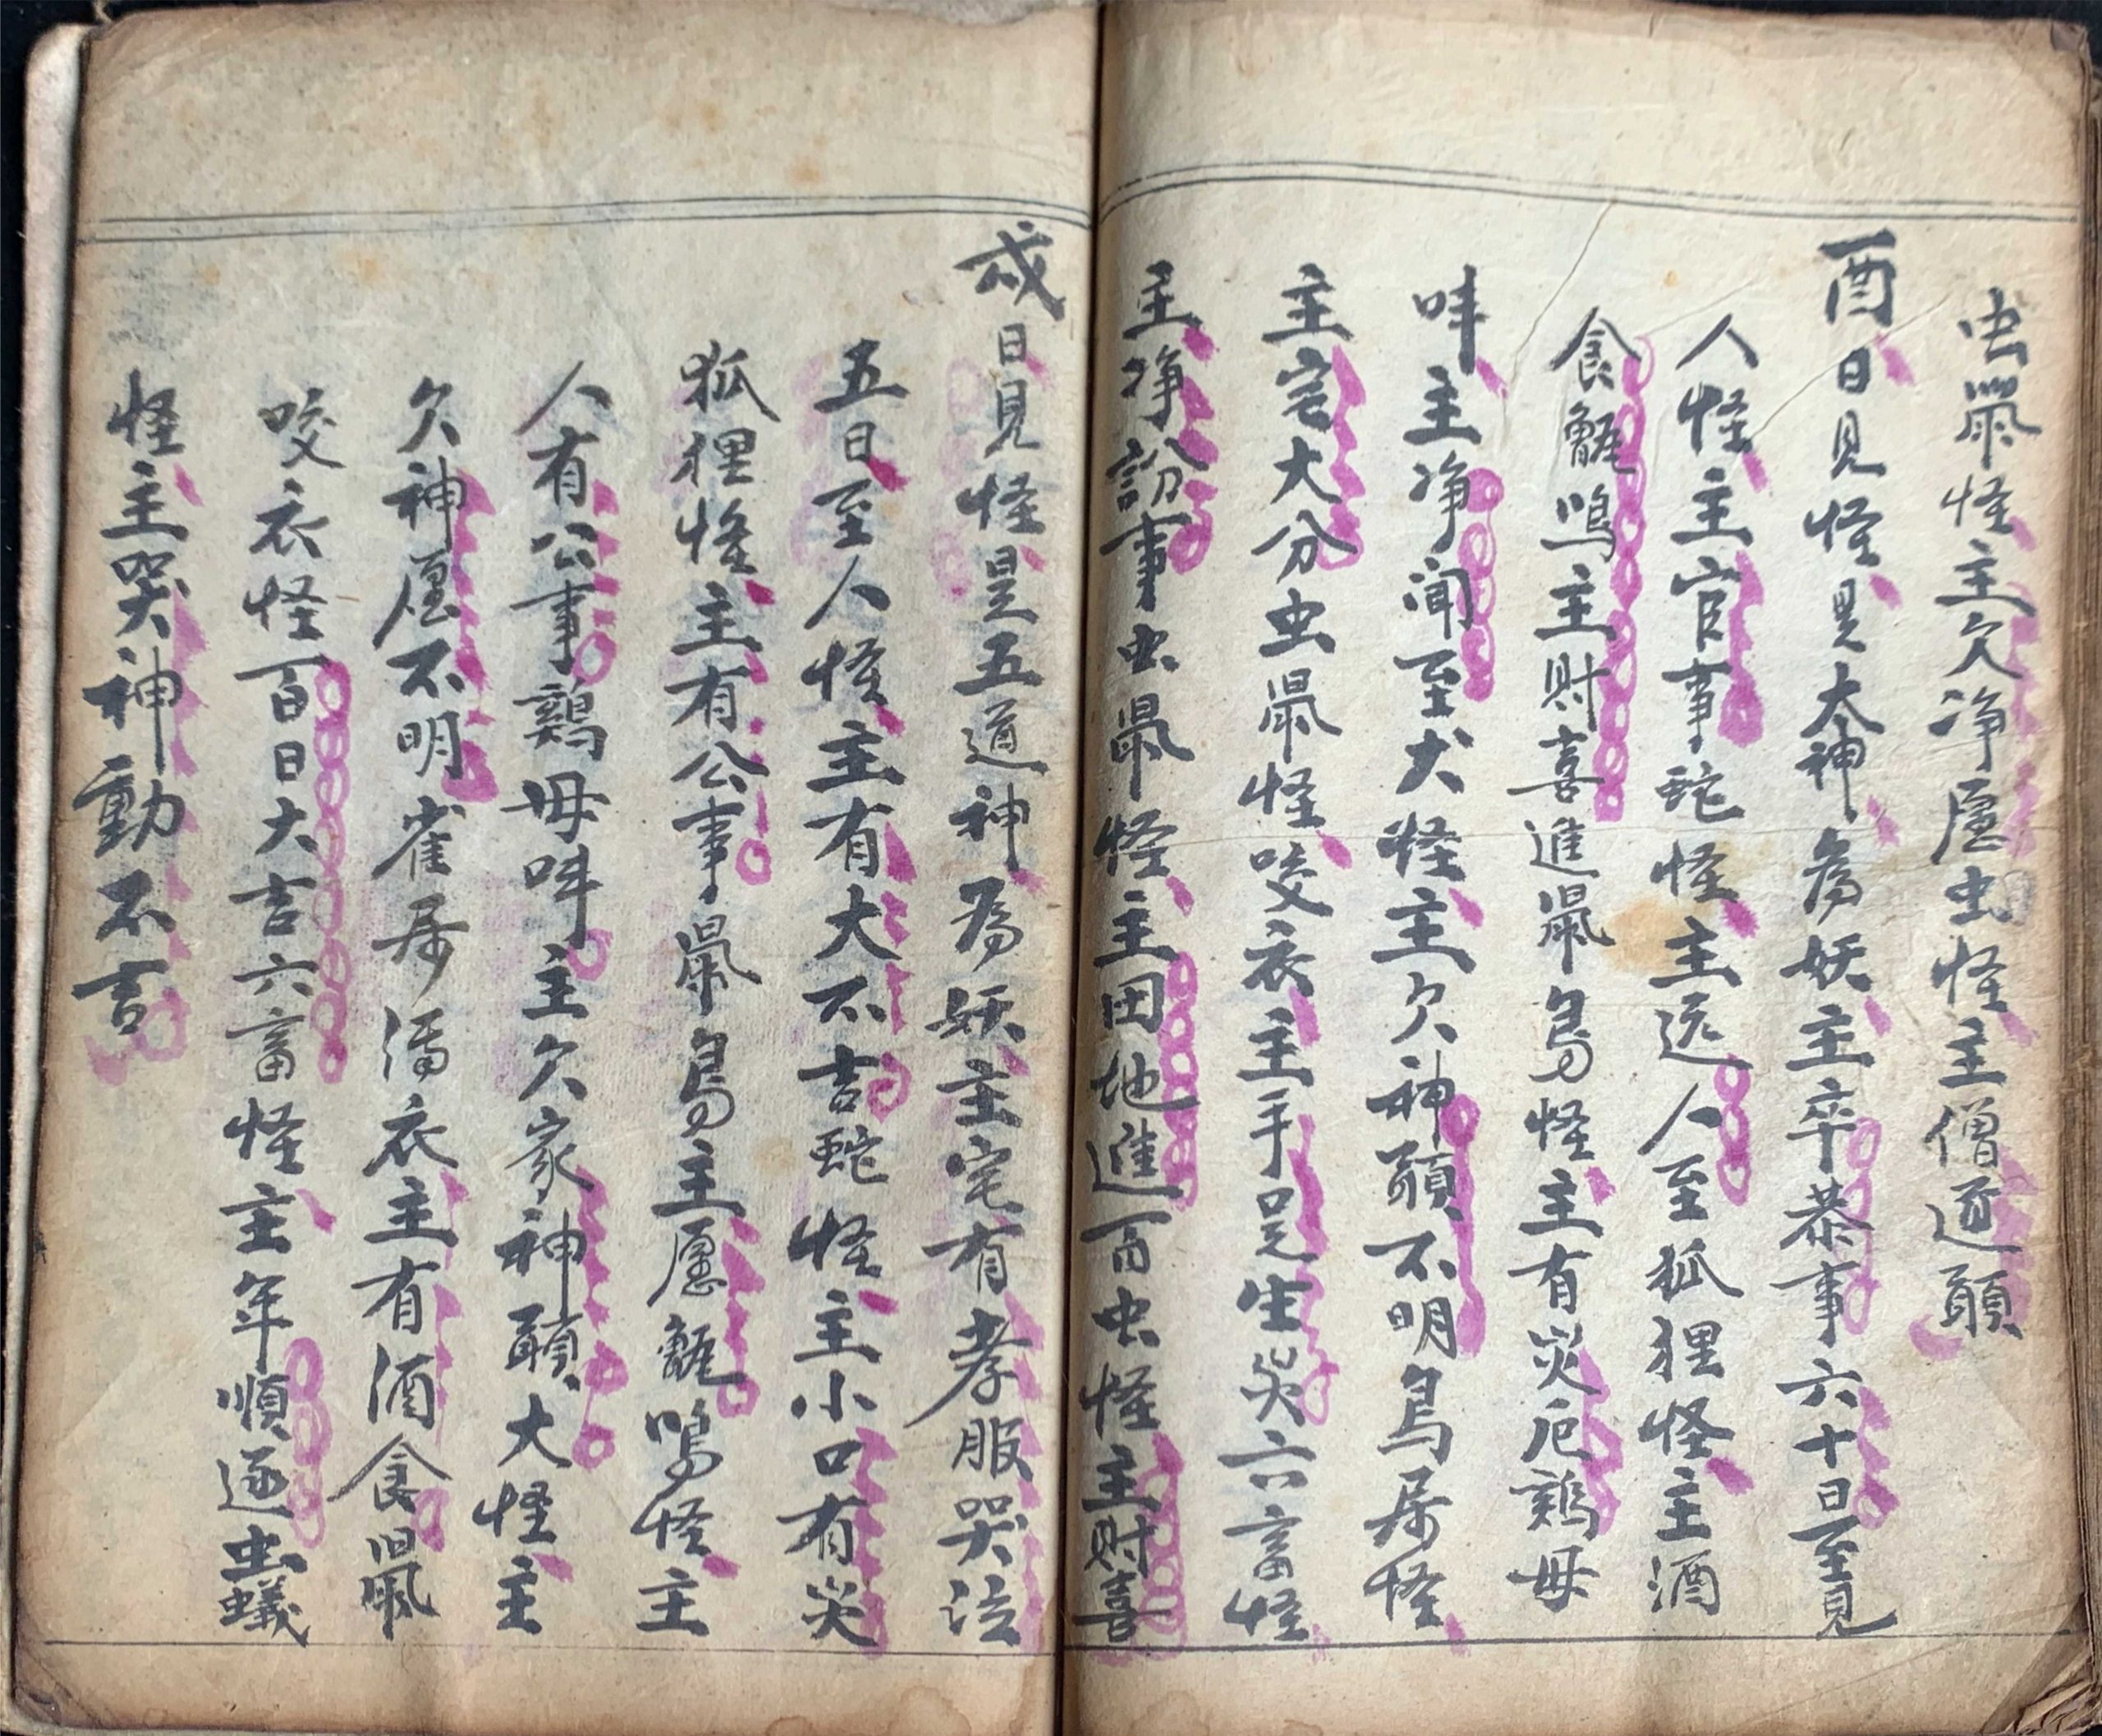 虫鼠怪主欠净愿虫怪主僧道願
酉日見怪是大神為妖主卒恭事六十日至見
人怪主官事蛇怪主远人至狐狸怪主酒
食甑鳴主財喜進鼠鳥怪主有災厄鷄母
呌主净闹至犬怪主欠神願不明鳥屎怪
主宅大分虫鼠怪咬衣主手足生災六畜怪
主净訟事虫鼠怪主田地進百虫怪主財喜
戌日見怪是五道神為妖主宅有孝服哭泣
五日至人怪主有大不吉蛇怪主小口有災
狐狸怪主有公事鼠鳥主愿甑鳴怪主
人有公事鷄母呌主欠家神願犬怪主
欠神愿不明雀屎污衣主有酒食鼠
咬衣怪百日大吉六畜怪主年順遂虫蟻
怪主哭神動不吉